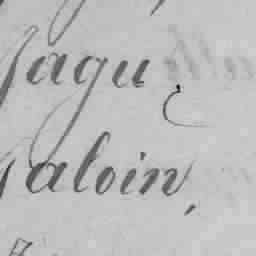 Jagu
Galoin,